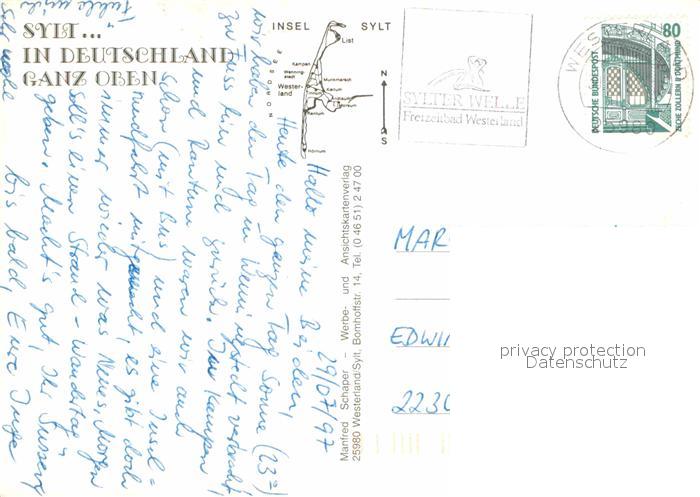 SYLT...
IN DEUTSCHLAND
GANZ OBEN
INSEL SYLT
List
Kampen
Wenning-
stadt
Munkmarsch
Wester-
land
Keitum
Morsum
Rantum
Hörnum
NORDSEE
N
S
SYLTER WELLE
Freizeitbad Westerland
WESTERLAND
80
DEUTSCHE BUNDESPOST
ZECHE ZOLLERN II DORTMUND
Manfred Schaper – Werbe- und Ansichtskartenverlag
25980 Westerland/Sylt, Bomhoffstr. 14, Tel. (0 46 51) 2 47 00
29/07/97
Hallo meine Beiden,
Heute den ganzen Tag Sonne (23°)
wir haben den Tag in Wenningstedt verbracht,
zu Fuss hin und zurück. In Kampen
und Rantum waren wir auch
schon (mit Bus) und eine Insel=
rundfahrt mitgemacht, es gibt doch
immer wieder was Neues. Morgen
soll's einen Strand-Wandertag
geben. Macht's gut, Ihr Süssen,
bis bald, Eure Inge
MAR
EDWI
223
privacy protection
Datenschutz